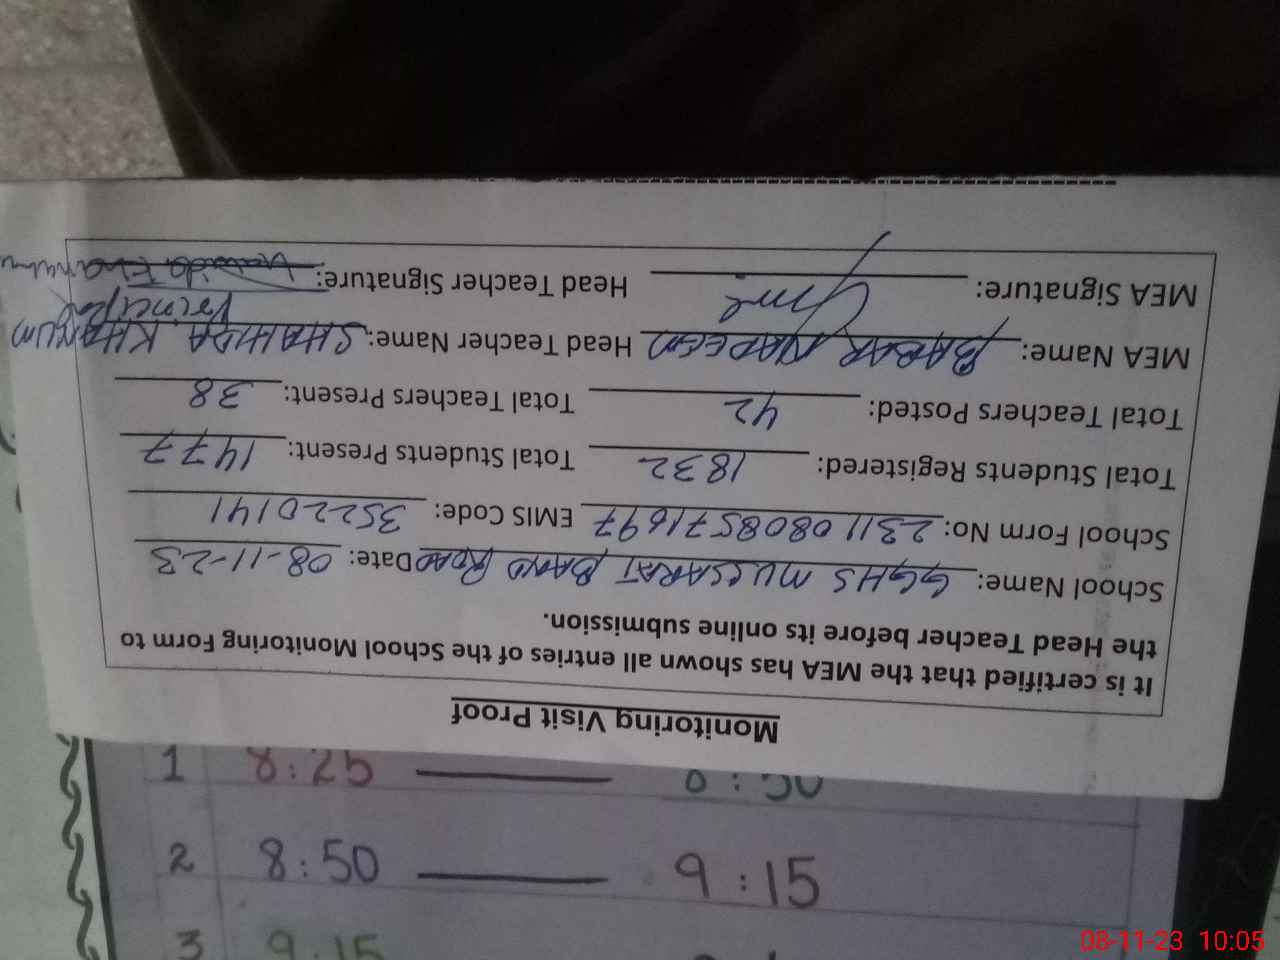 Monitoring Visit Proof
It is certified that the MEA has shown all entries of the School Monitoring Form to
the Head Teacher before its online submission.
School Name: GGHS MUSSARAT BAND ROAD Date: 08-11-23
School Form No: 23110808571697 EMIS Code: 35220141
Total Students Registered: 1832 Total Students Present: 1477
Total Teachers Posted: 42 Total Teachers Present: 38
MEA Name: BABAR NADEEM Head Teacher Name: SHAHIDA KHANUM
Principal
MEA Signature: Head Teacher Signature:
1 8:25 8:50
2 8:50 9:15
3 9:15
08-11-23 10:05